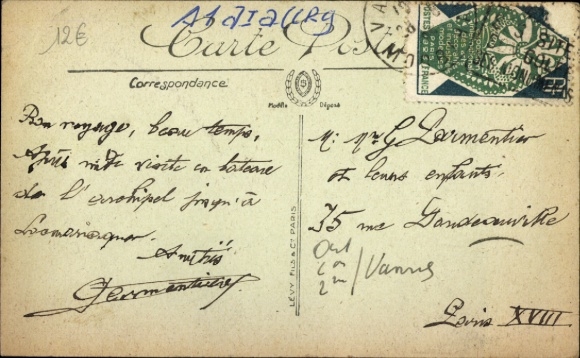 12€
Carte Postale
Correspondance
Modèle Déposé
Bon voyage, beau temps,
Après midi visite en bateau
de l'archipel jusqu'à
Locmariaquer.
Amitiés
LÉVY, FILS & Cie PARIS
M. Mme G Parmentier
et leurs enfants.
35 rue
Vannes
Paris XVIII
POSTES FRANCE
PARIS 1925